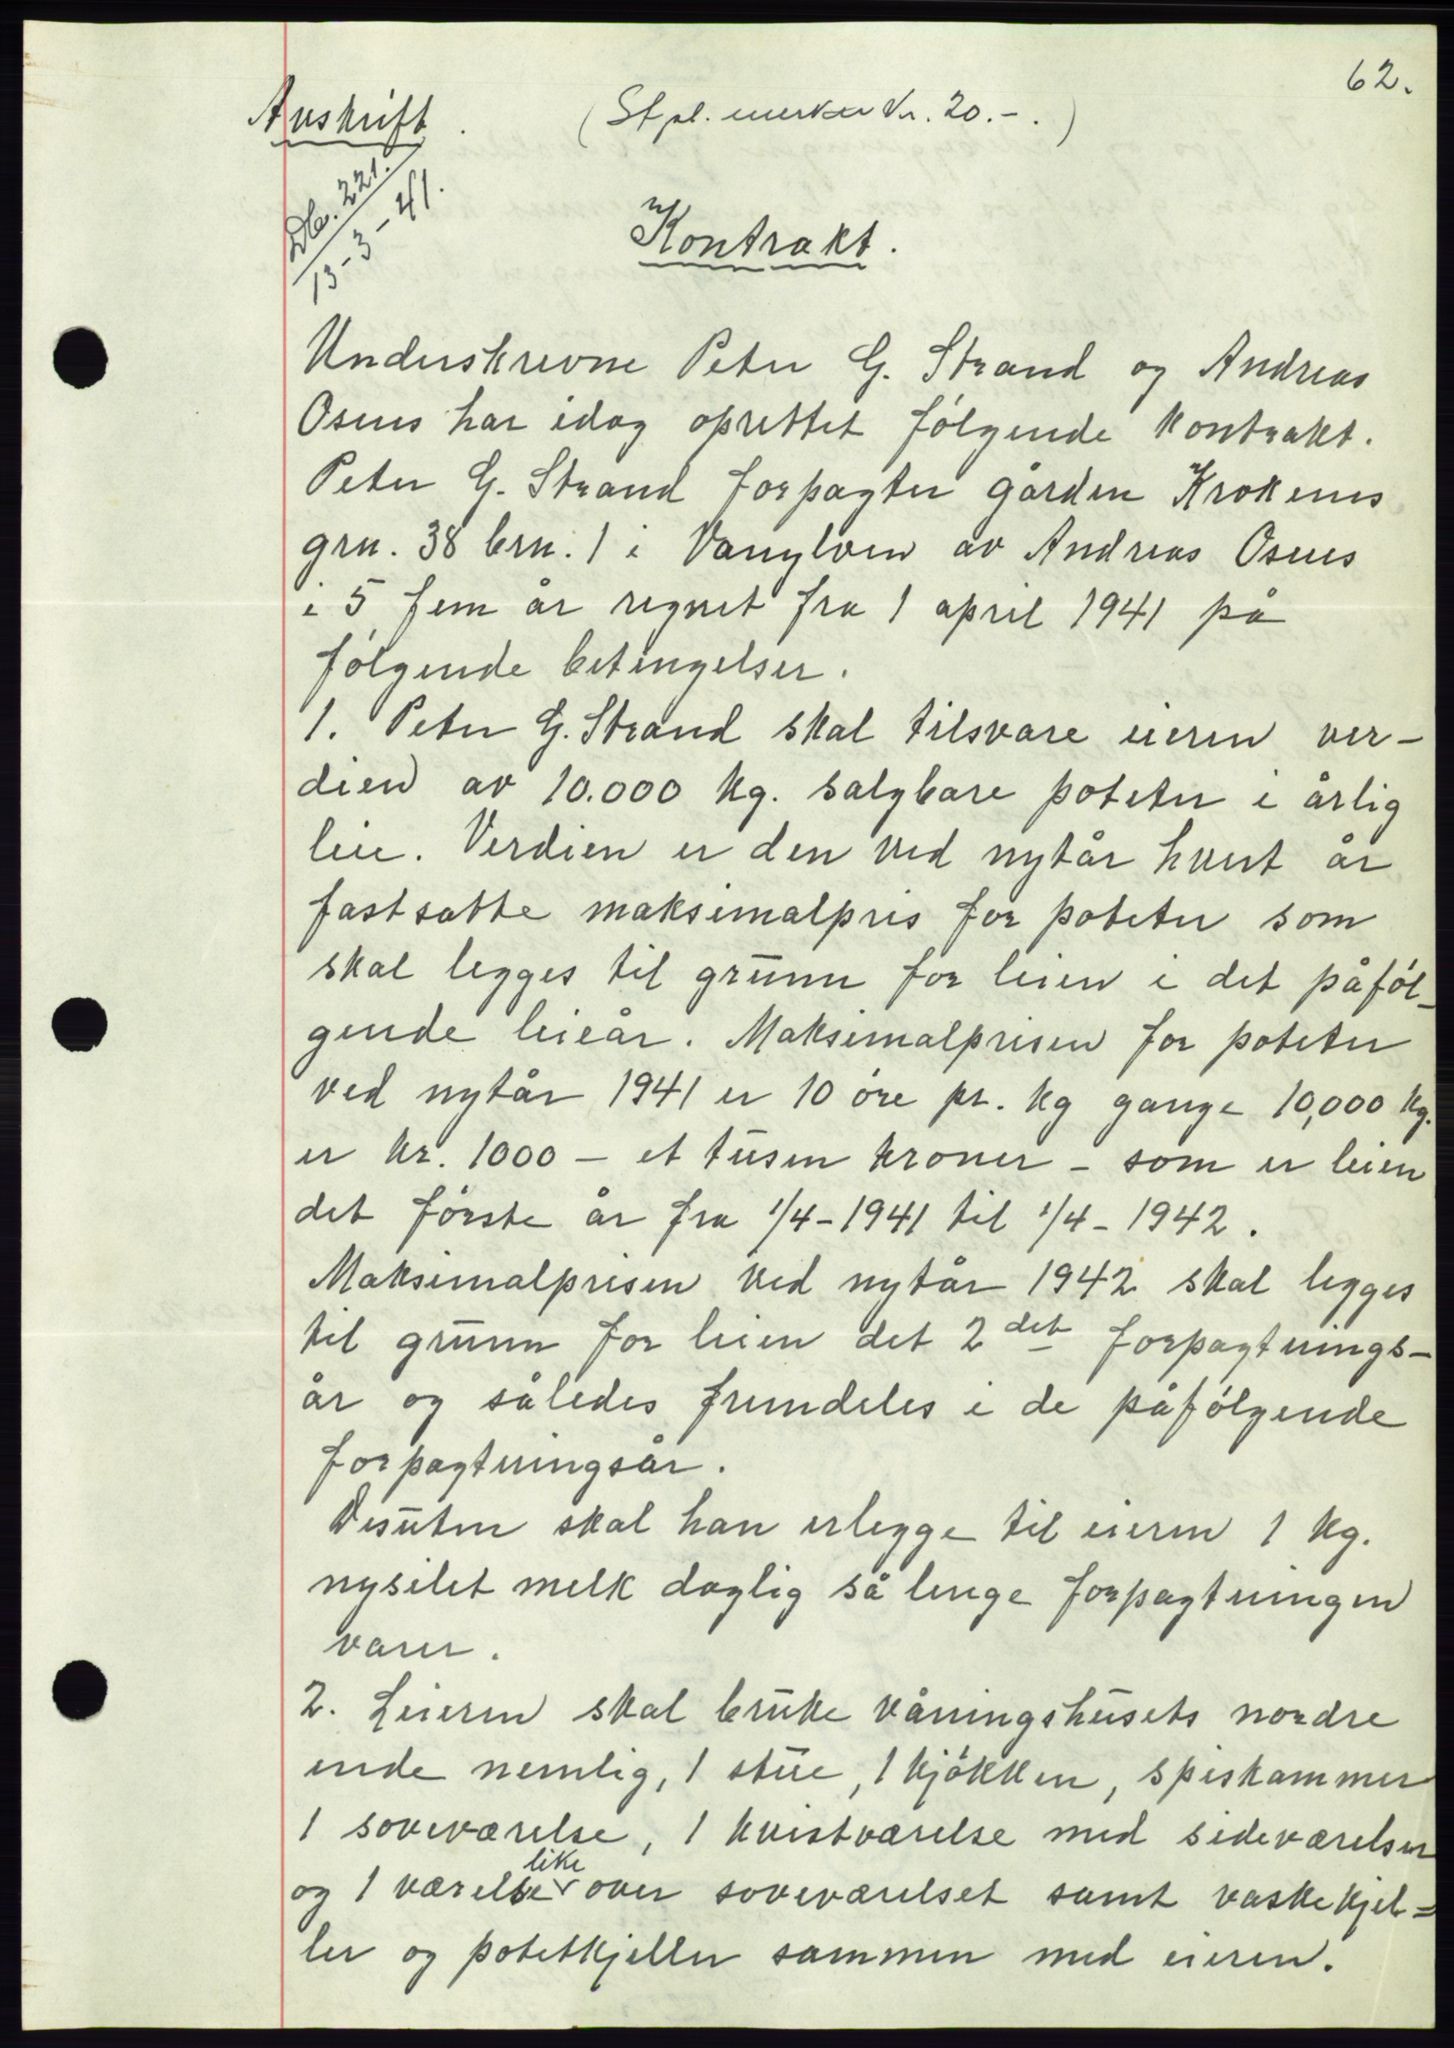 62.
Avskrift. (Stpl. merker kr. 20.-.)
Db. 221.
13-3-41.
Kontrakt.
Underskrevne Peter G. Strand og Andreas
Osnes har idag oprettet følgende kontrakt.
Peter G. Strand forpagter gården Kroknes
grn. 38 brn. 1 i Vanylven av Andreas Osnes
i 5 fem år regnet fra 1 april 1941 på
følgende betingelser.
1. Peter G. Strand skal tilsvare eieren ver-
dien av 10.000 kg. salgbare poteter i årlig
leie. Verdien er den ved nytår hvert år
fastsatte maksimalpris for poteter som
skal legges til grunn for leien i det påføl-
gende leieår. Maksimalprisen for poteter
ved nytår 1941 er 10 øre pr. kg gange 10,000 kg.
er kr. 1000 - et tusen kroner - som er leien
det første år fra 1/4-1941 til 1/4-1942.
Maksimalprisen ved nytår 1942 skal legges
til grunn for leien det 2det forpagtnings-
år og således fremdeles i de påfølgende
forpagtningsår.
Desuten skal han erlegge til eieren 1 kg.
nysilet melk daglig så lenge forpagtningen
varer.
2. Leieren skal bruke våningshusets nordre
ende nemlig, 1 stue, 1 kjøkken, spiskammer
1 soveværelse, 1 kvistværelse med sideværelser
og 1 værelse like over soveværelset samt vaskekjel=
ler og potetkjeller sammen med eieren.